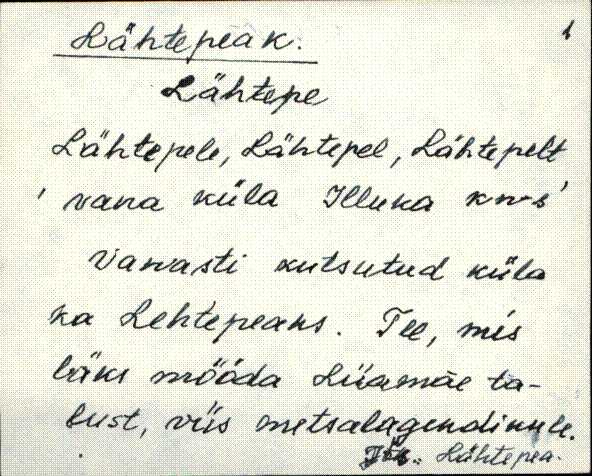 Lähtepeak.
Lähtepe
Lähtepele, Lähtepel, Lähtepelt
' vana küla Illuka kn-s'
Vanasti kutsutud küla
ka Lehtepeaks. Tee, mis
läks mööda Liiamäe ta-
bust, viis metsalagendikule.
Lähtepea.